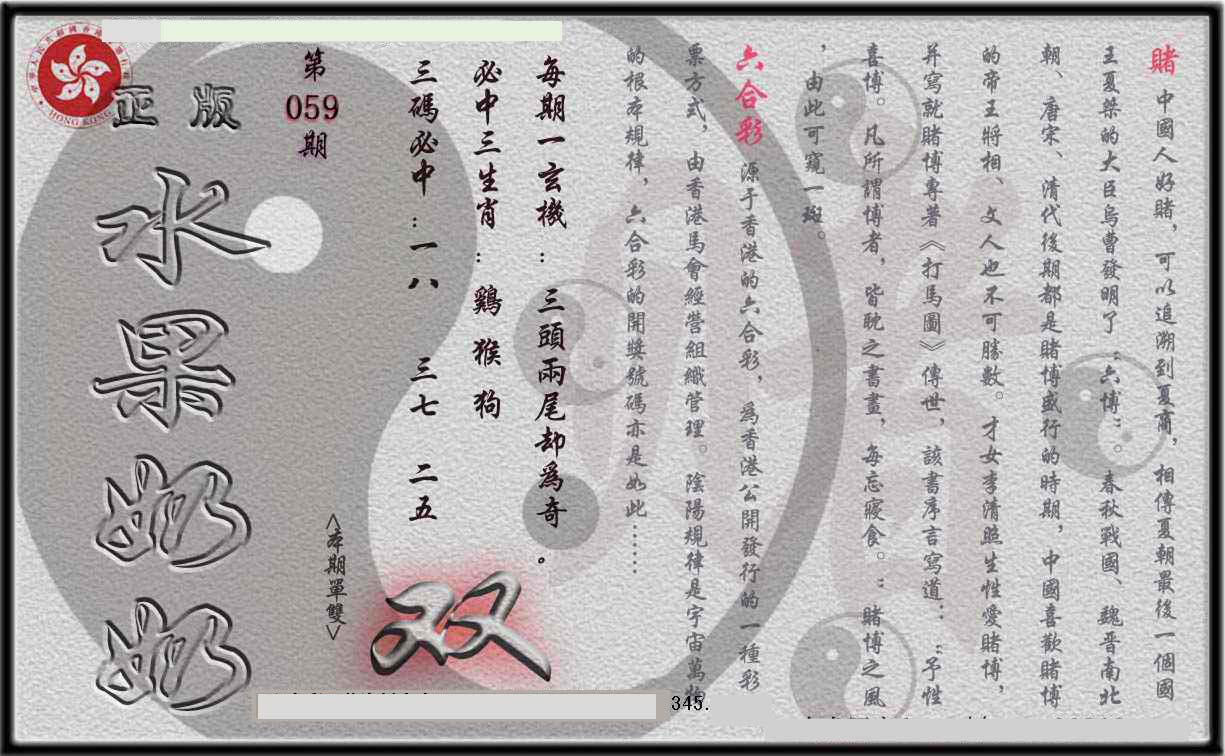 賭 中國人好賭，可以追溯到夏商，相傳夏朝最後一個國
王夏桀的大臣烏曹發明了“六博”。春秋戰國、魏晋南北
朝、唐宋、清代後期都是賭博盛行的時期，中國喜歡賭博
的帝王將相、文人也不可勝數。才女李清照生性愛賭博，
并寫就賭博專著《打馬圖》傳世，該書序言寫道：“予性
喜博。凡所謂博者，皆耽之書畫，每忘寢食。”賭博之風
，由此可窺一斑。
六合彩 源于香港的六合彩，爲香港公開發行的一種彩
票方式，由香港馬會經營組織管理。陰陽規律是宇宙萬物
的根本規律，六合彩的開獎號碼亦是如此……
每期一玄機：三頭兩尾却爲奇。
必中三生肖：鷄 猴 狗
三碼必中：一八 三七 二五
<本期單雙>
双
第
059
期
正版
水果奶奶
HONG KONG
345.